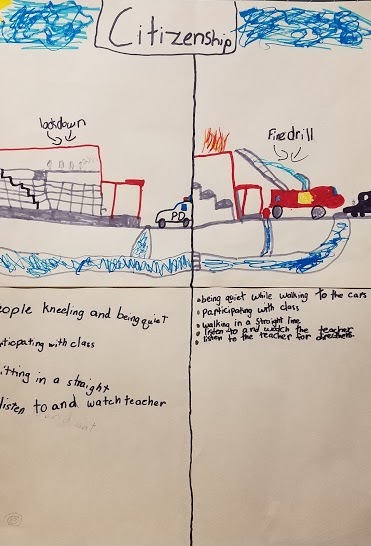 Citizenship
lockdown
Fire drill
PD
eople kneeling and being quieT
rticipating with class
itting in a straight
listen to and watch teacher
being quiet while walking to the cars
Participating with class
walking in a straight line
listen to and watch the teacher
listen to the teacher for directions.